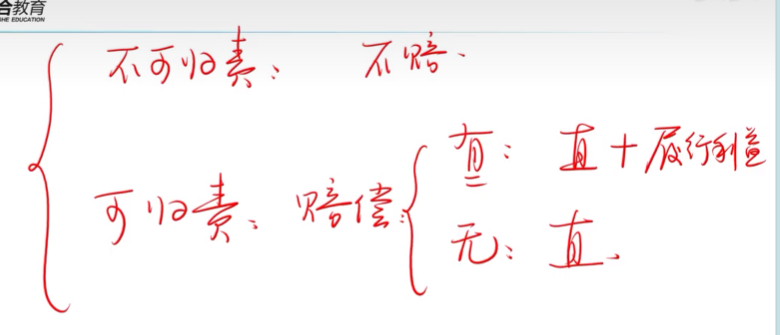 合教育
HE EDUCATION
不可归责： 不赔.
可归责、赔偿：
有： 直＋履行利益
无： 直.